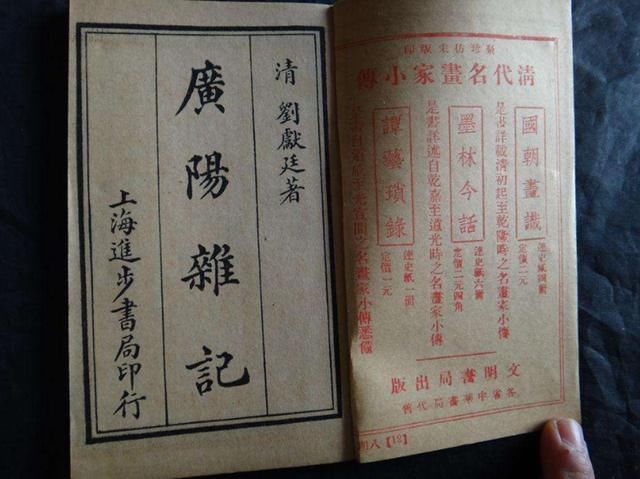 聚珍仿宋版印
清代名畫家小傳
國朝畫識
連史紙四冊
定價二元
是書詳載清初起至乾隆時之名畫家小傳
墨林今話
連史紙六冊
定價二元四角
是書詳述自乾嘉至道光時之名畫家小傳
譚藝瑣錄
連史紙一冊
定價一元
之名畫家小傳悉備
文明書局出版
各省中華書局代售
【12】八
清 劉獻廷著
廣陽雜記
上海進步書局印行